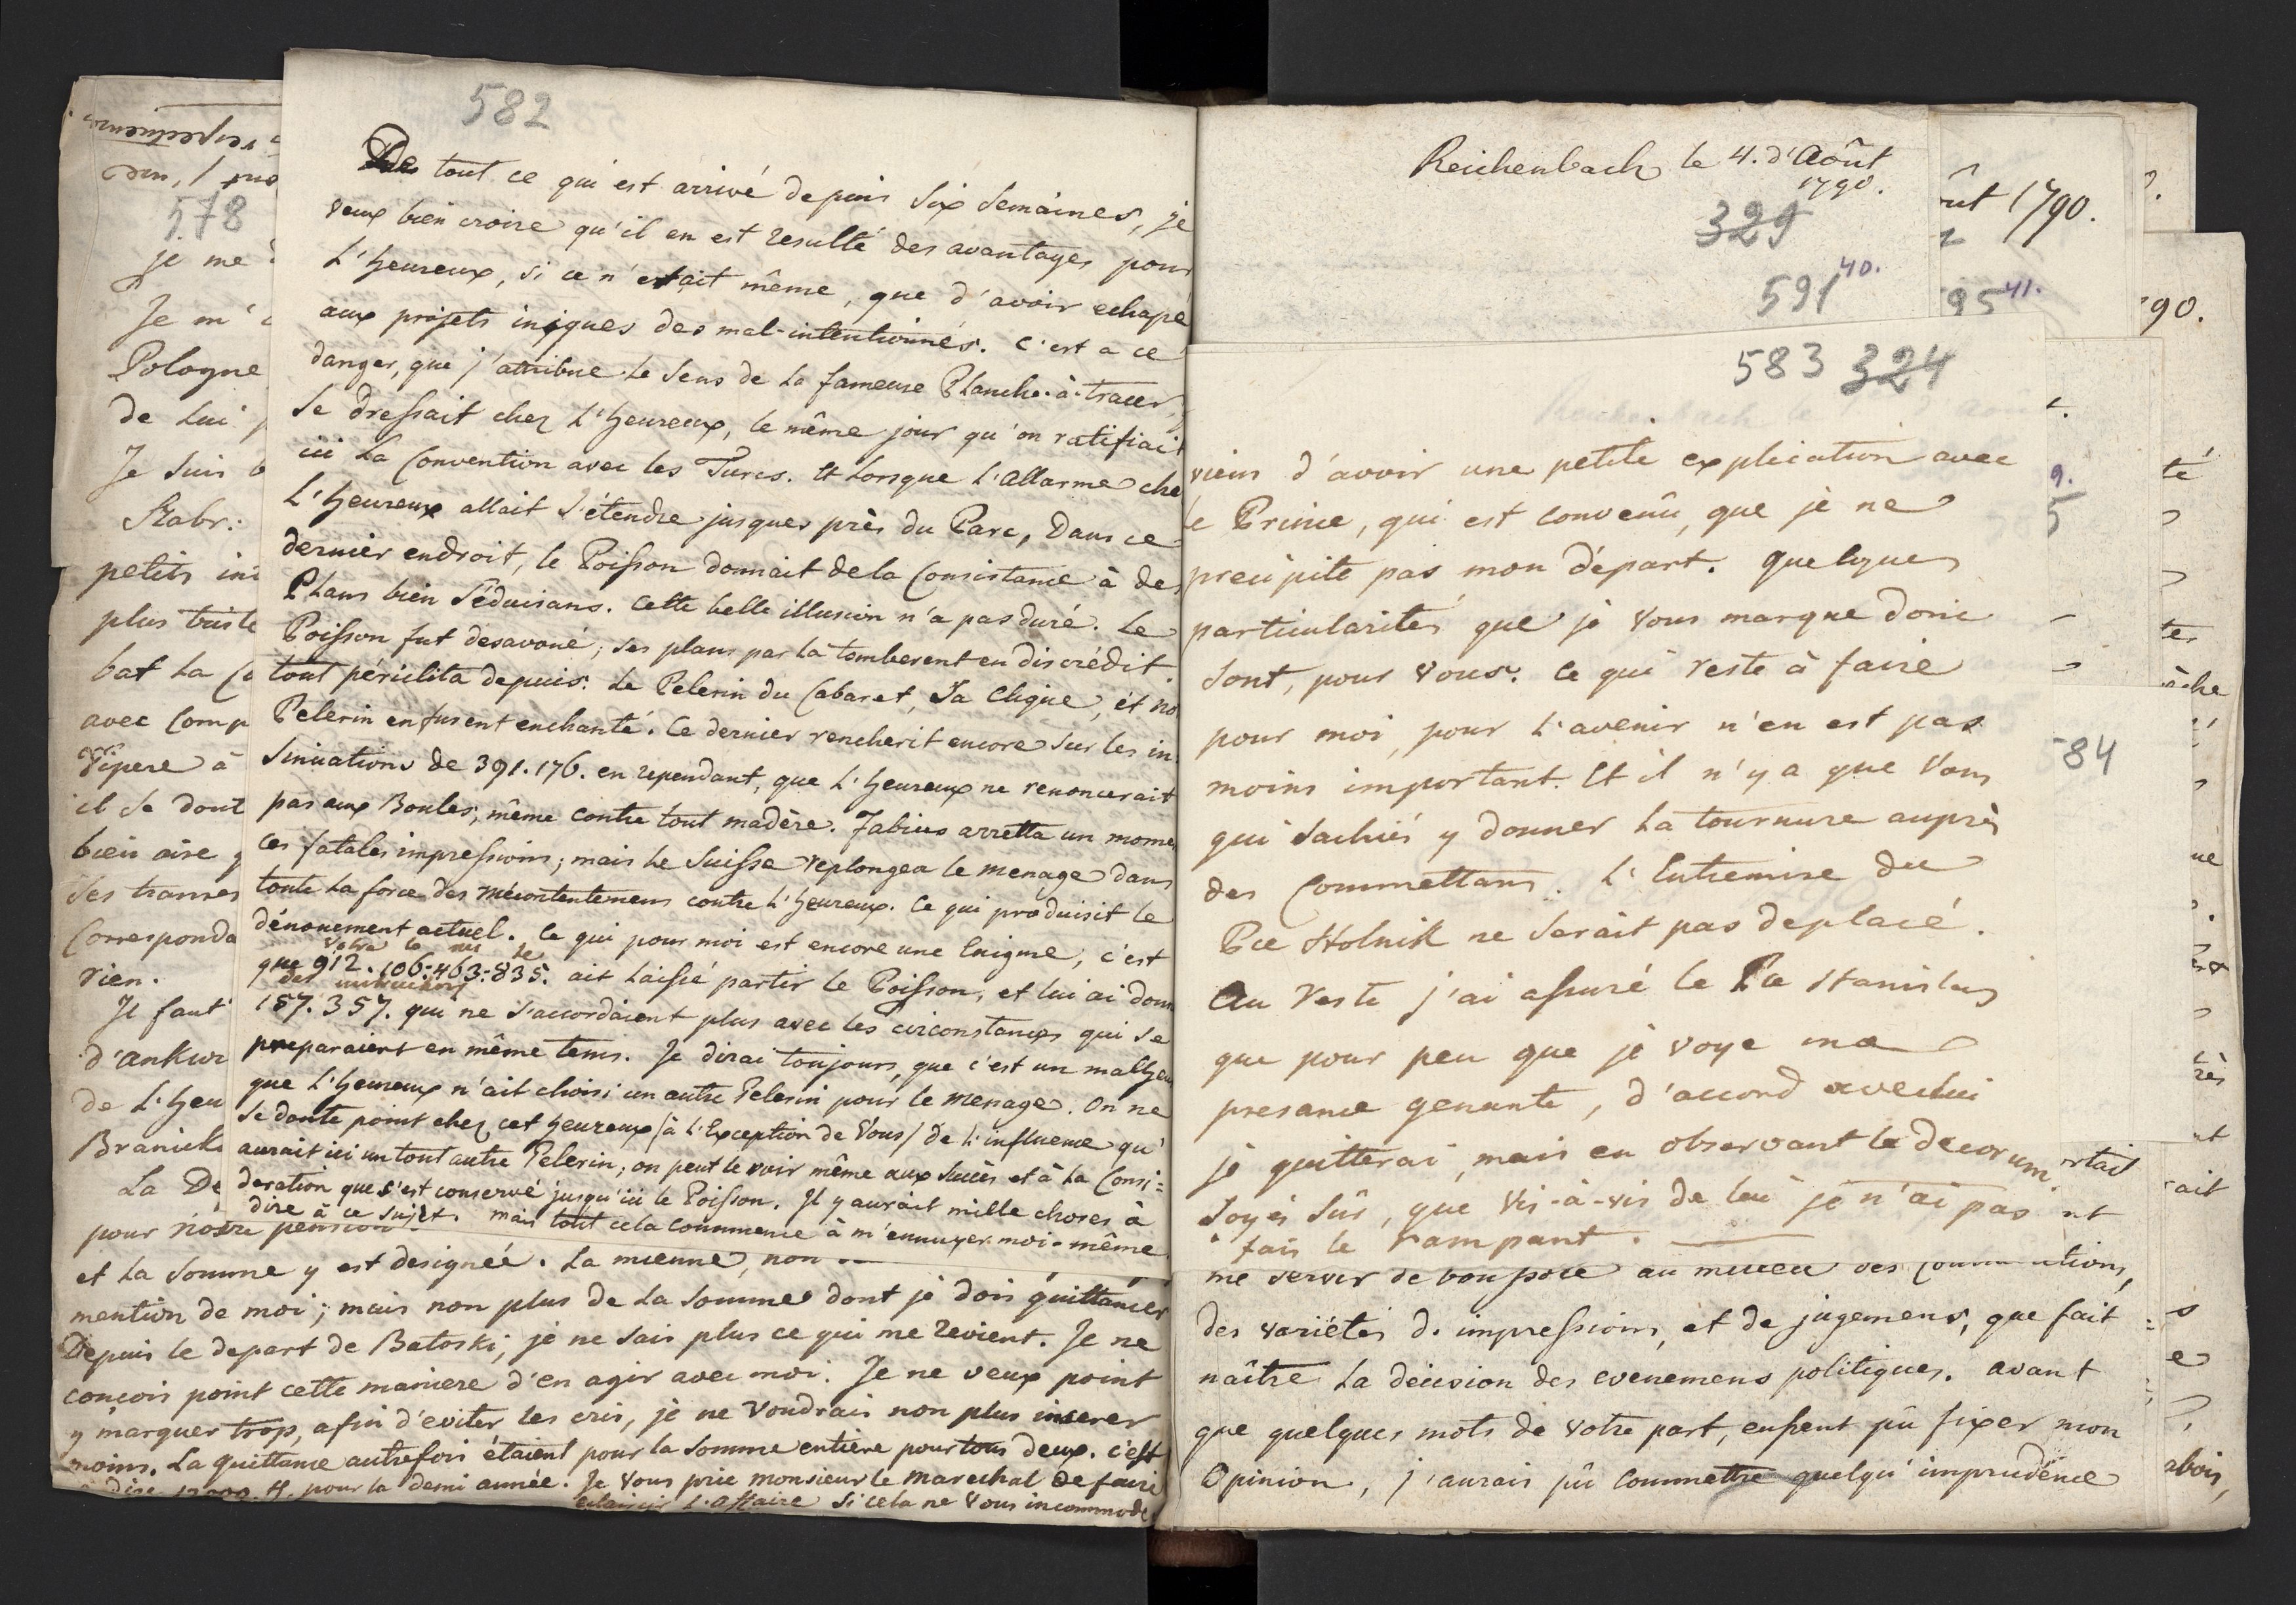 582
De tout ce qui est arrivé depuis Six Semaines, je
veux bien croire qu'il en est resulté des avantages pour
L'heureux, si ce n'etait même, que d'avoir echapé
aux projets iniques des mal-intentionnés. C'est a ce
danger, que j'attribue le Sens de la fameuse Planche-à-tracer,
Se dressait chez L'heureux, le même jour qu'on ratifiait
ici La Convention avec les Turcs. Et Lorsque L'Allarme che
L'heureux allait S'étendre jusques près du Parc, Dans ce
dernier endroit, le Poisson donnait de la Consistance à des
Plans bien Séduisans. Cette belle illusion n'a pas duré. Le
Poisson fut desavoué; ses plans par là tomberent en discrédit.
tout périclita depuis. Le Pelerin du Cabaret, Sa Clique, et no
Pelerin en furent enchanté. Ce dernier rencherit encore Sur les in-
Sinuations de 391. 176. en rependant, que L'heureux ne renoncerait
pas aux Boules, même contre tout madère. Fabius arretta un mome
ces fatales impressions; mais Le Suisse replongea le menage dans
toute La force des mécontentemens contre L'heureux. Ce qui produisit le
dénouement actuel. Ce qui pour moi est encore une Enigme, c'est
que 912. 106. 463. 835. ait Laissé partir le Poisson, et lui ai donn
des instructions
157. 357. qui ne S'accordaient plus avec les circonstances qui se
preparaient en même tems. Je dirai toujours, que c'est un malheu
que L'heureux n'ait choisi un autre Pelerin pour le menage. On ne
Se doute point chez cet heureux /à L'Exception de Vous/ de L'influence qu'
aurait ici un tout autre Pelerin; on peut le voir même aux Succès et à La Consi=
deration que s'est conservé jusqu'ici le Poisson. Il y aurait mille choses à
dire à ce Sujet. mais tout cela commence à m'ennuyer moi-même
578
je me
Je m'
Pologne
de Lui
Je Suis
Stabr:
petits
plus triste
bat La
avec Comp
Vipere à
il Se dout
bien aise
Ses transes
Corresponda
rien.
Il faut
d'Ankwi
de L'heu
Branick
La De
pour notre pension
et La Somme y est designée. La mienne, non
mention de moi; mais non plus de La Somme dont je dois quittancer
Depuis le depart de Batoski, je ne Sais plus ce qui me revient. Je ne
concois point cette maniere d'en agir avec moi. Je ne veux point
y marquer trop, afin d'eviter les cris, je ne Voudrais non plus inserer
moins. La quittance autrefois étaient pour la Somme entiere pour tous deux. c'est
pour la demi année. Je Vous prie Monsieur le Marechal de faire
eclaircir L'affaire Si cela ne Vous incommode
Reichenbach le 4. d'Août
1790.
329
591 40.
ût 1790.
95 41.
90.
583 324
viens d'avoir une petite explication avec
le Prince, qui est convenû, que je ne
precipite pas mon départ. Quelques
particularités que je Vous marque donc
Sont, pour Vous. Ce qui reste à faire
pour moi, pour L'avenir n'en est pas
moins important. Et il n'y a que Vous
qui Sachiés y donner La tournure auprès
des Commettans. L'Entremise du
Pce Stolnik ne Serait pas deplacé.
Au reste j'ai assuré le Pce Stanislas
que pour peu que je voye ma
presance genante, d'accord avec lui
je quitterai, mais en observant le decorum
Soyés Sûr, que vis-à-vis de lui je n'ai pas
fais le rampant.
84
me servir de boussole au milieu des
des variétés d'impressions, et de jugemens, que fait
naître La décision des evenemens politiques. Avant
que quelques mots de votre part, eussent pû fixer mon
Opinion, j'aurais pû Commettre quelqu'imprudence